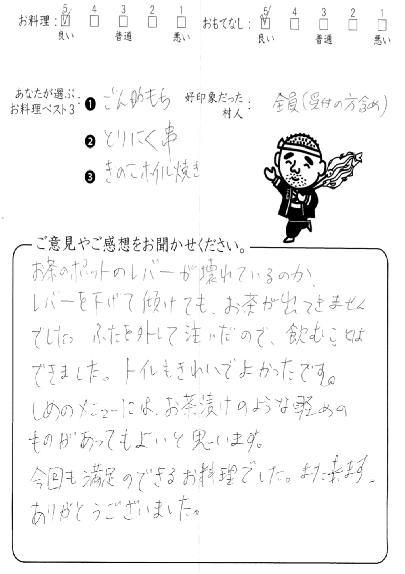 お料理: 5 4 3 2 1 おもてなし: 5 4 3 2 1
良い 普通 悪い 良い 普通 悪い
あなたが選ぶ お料理ベスト3: ❶ ごん助もち 好印象だった村人: 全員(受付の方含め)
❷ とりにく串
❸ きのこホイル焼き
ご意見やご感想をお聞かせください。
お茶のポットのレバーが壊れているのか、
レバーを下げて傾けても、お茶が出てきません
でした。ふたを外して注いだので、飲むことは
できました。トイレもきれいでよかったです。
しめのメニューには、お茶漬けのような軽めの
ものがあってもよいと思います。
今回も満足のできるお料理でした。また来ます。
ありがとうございました。